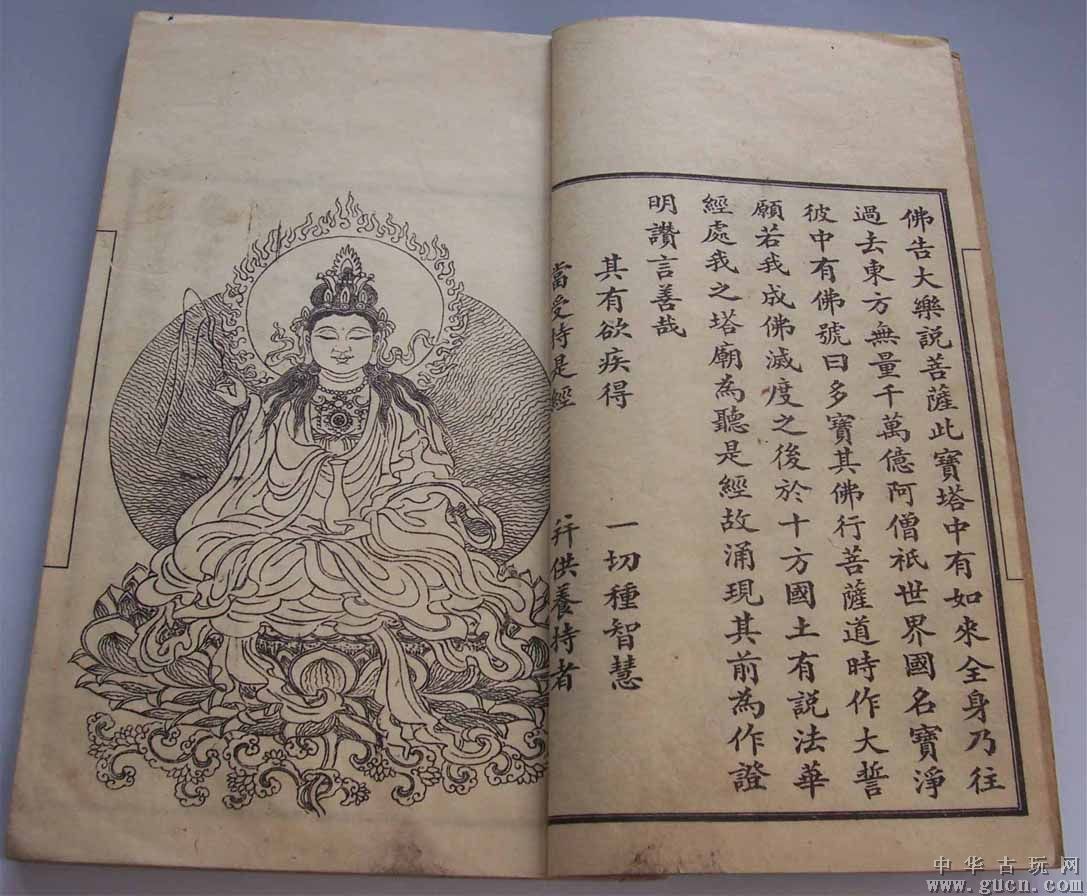 佛告大樂説菩薩此寶塔中有如來全身乃往
過去東方無量千萬億阿僧祇世界國名寶淨
彼中有佛號曰多寶其佛行菩薩道時作大誓
願若我成佛滅度之後於十方國土有説法華
經處我之塔廟為聽是經故涌現其前為作證
明讚言善哉
其有欲疾得 一切種智慧
當受持是經 幷供養持者
中华古玩网
www.gucn.com